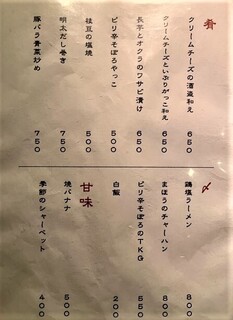 肴
クリームチーズの酒盗和え 650
クリームチーズといぶりがっこ和え 650
長芋とオクラのワサビ漬け 650
ピリ辛そぼろやっこ 500
枝豆の塩焼 500
明太だし巻き 750
豚バラ青菜炒め 750
〆
鶏塩ラーメン 800
まぼうのチャーハン 800
ピリ辛そぼろのTKG 550
白飯 200
甘味
焼バナナ 500
季節のシャーベット 400